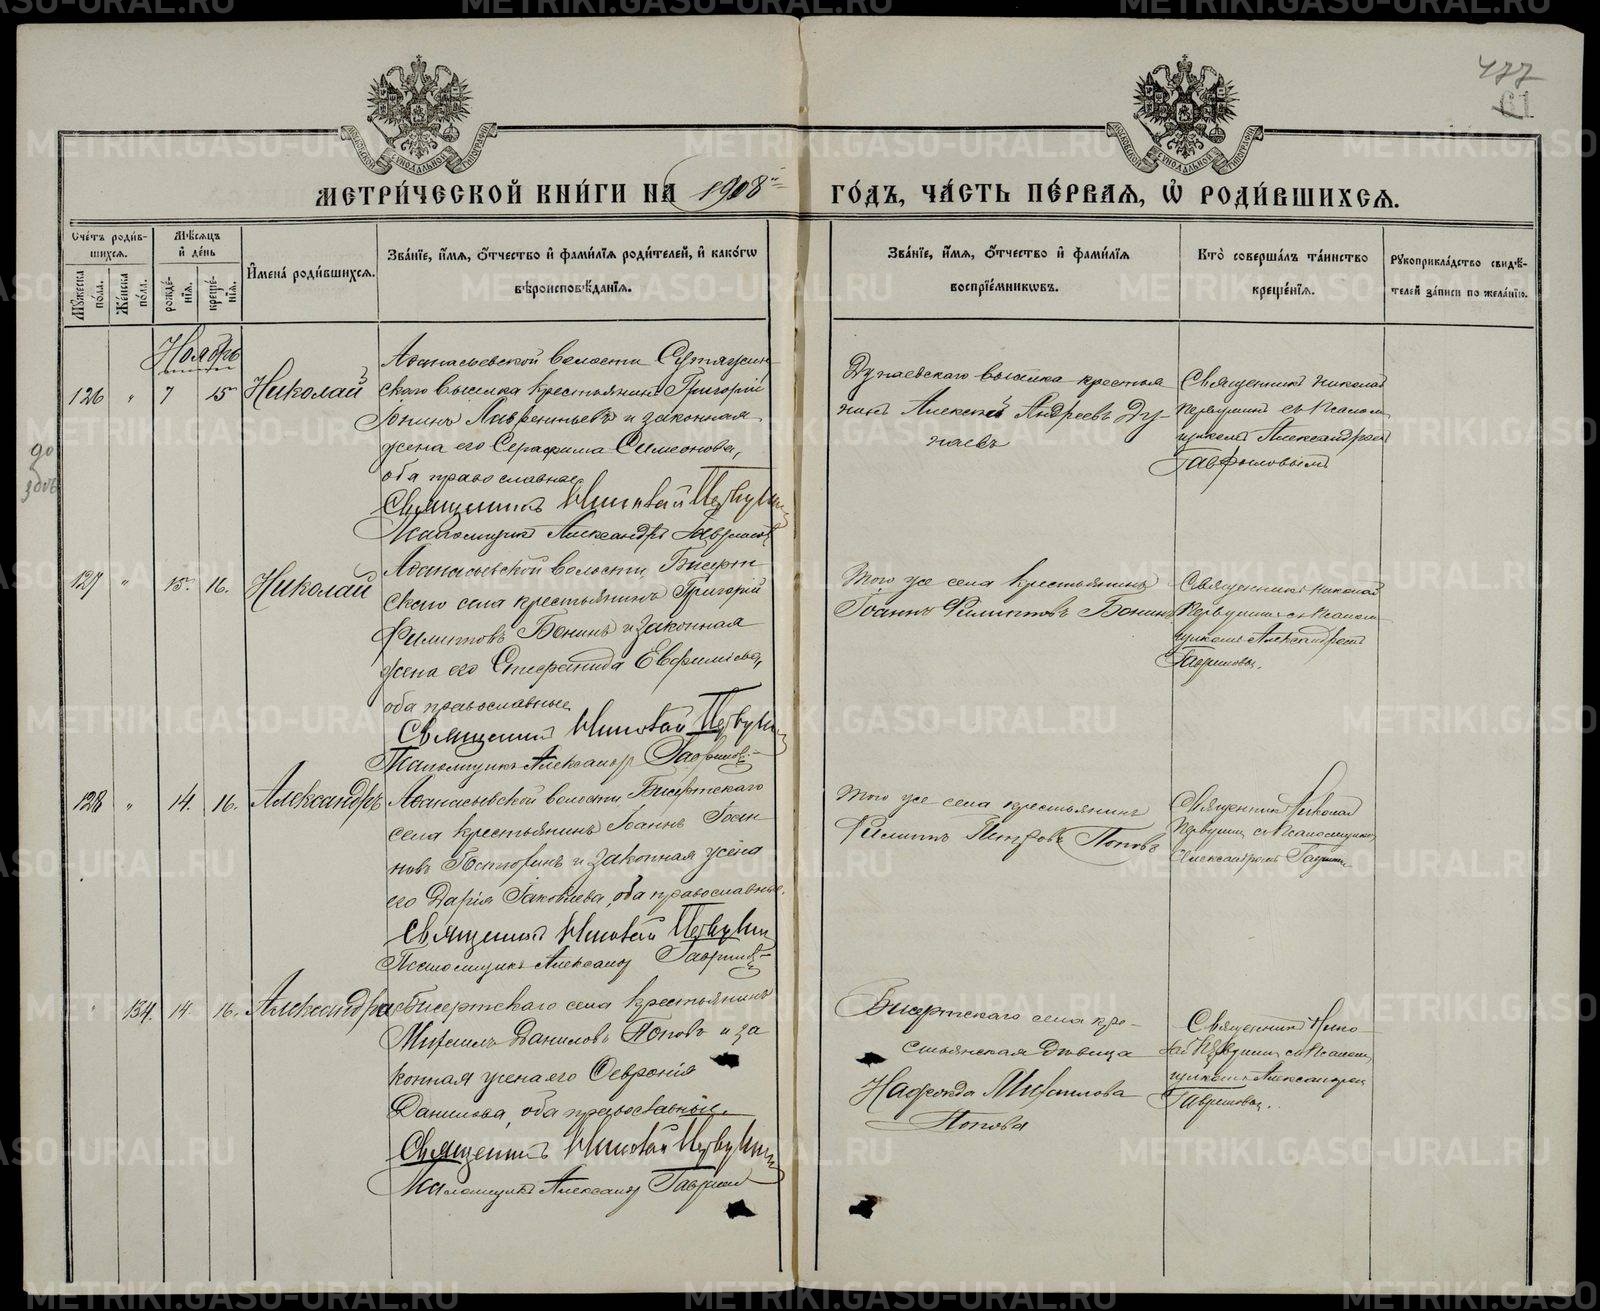 477
61
МЕТРИ́ЧЕСКОЙ КНИ́ГИ НА 1908 ГО́ДЪ, ЧА́СТЬ ПЕ́РВАЯ, Ѡ РОДИ́ВШИХСЯ.
Сче́тъ роди́вшихся.
Му́жеска по́ла.
Же́нска по́ла.
Мѣ́сяцъ и҆ де́нь
рожде́нїя.
креще́нїя.
И҆мена́ роди́вшихся.
Зва́нїе, и҆́мя, ѻ҆́тчество и҆ фами́лїя роди́телей, и҆ како́гѡ
вѣроисповѣ́данїя.
Зва́нїе, и҆́мя, ѻ҆́тчество и҆ фами́лїя
воспрїе́мникѡвъ.
Кто̀ соверша́лъ та́инство
креще́нїя.
Рукоприкла́дство свидѣ́-
телей за́писи по жела́нїю.
Ноябрь
126 " 7 15 Николай
Афанасьевской волости Сутяжин-
скаго выселка крестьянинъ Григорій
Іонинъ Лаврентьевъ и законная
жена его Серафима Симеонова,
оба православные
Священникъ Николай Первушин
Псаломщикъ Александръ Гаврилов
Дунаевскаго выселка крестья
нинъ Алексей Андреевъ Ду-
наевъ
Священникъ Николай
Первушинъ съ псалом
щикомъ Александромъ
Гавриловымъ
127 " 15. 16. Николай
Афанасьевской волости, Бисерт
скаго села крестьянинъ Григорій
Филиповъ Бонинъ и законная
жена его
оба православные
Священникъ Николай Первушин
Псаломщикъ Александр Гаврилов
Того же села крестьянинъ
Іоаннъ Филиповъ Бонинъ
Священникъ Николай
Первушинъ съ псалом
щикомъ Александром
Гавриловы.
128 " 14. 16. Александръ
Афанасьевской волости, Бисертскаго
села крестьянинъ Іоаннъ Іоан
новъ и законная жена
его Дарія Іаковлева, оба православные.
Священникъ Николай Первушин
Псаломщикъ Александр Гаврилов
Того же села крестьянинъ
Филиппъ Петровъ Поповъ
Священникъ Николай
Первушин съ псаломщиком
Александромъ Гаврилов
134. 14. 16. Александра
Бисертскаго села крестьянинъ
Михаилъ Даниловъ Поповъ и за
конная жена его Февронія
Данилова, оба православные.
Священникъ Николай Первушин
Псаломщикъ Александр Гаврилов
Бисертскаго села кре-
стьянская девица
Надежда Михаилова
Попова
Священникъ Нико
лай Первушин съ псалом
щикомъ Александром
Гавриловы.
METRIKI.GASO-URAL.RU